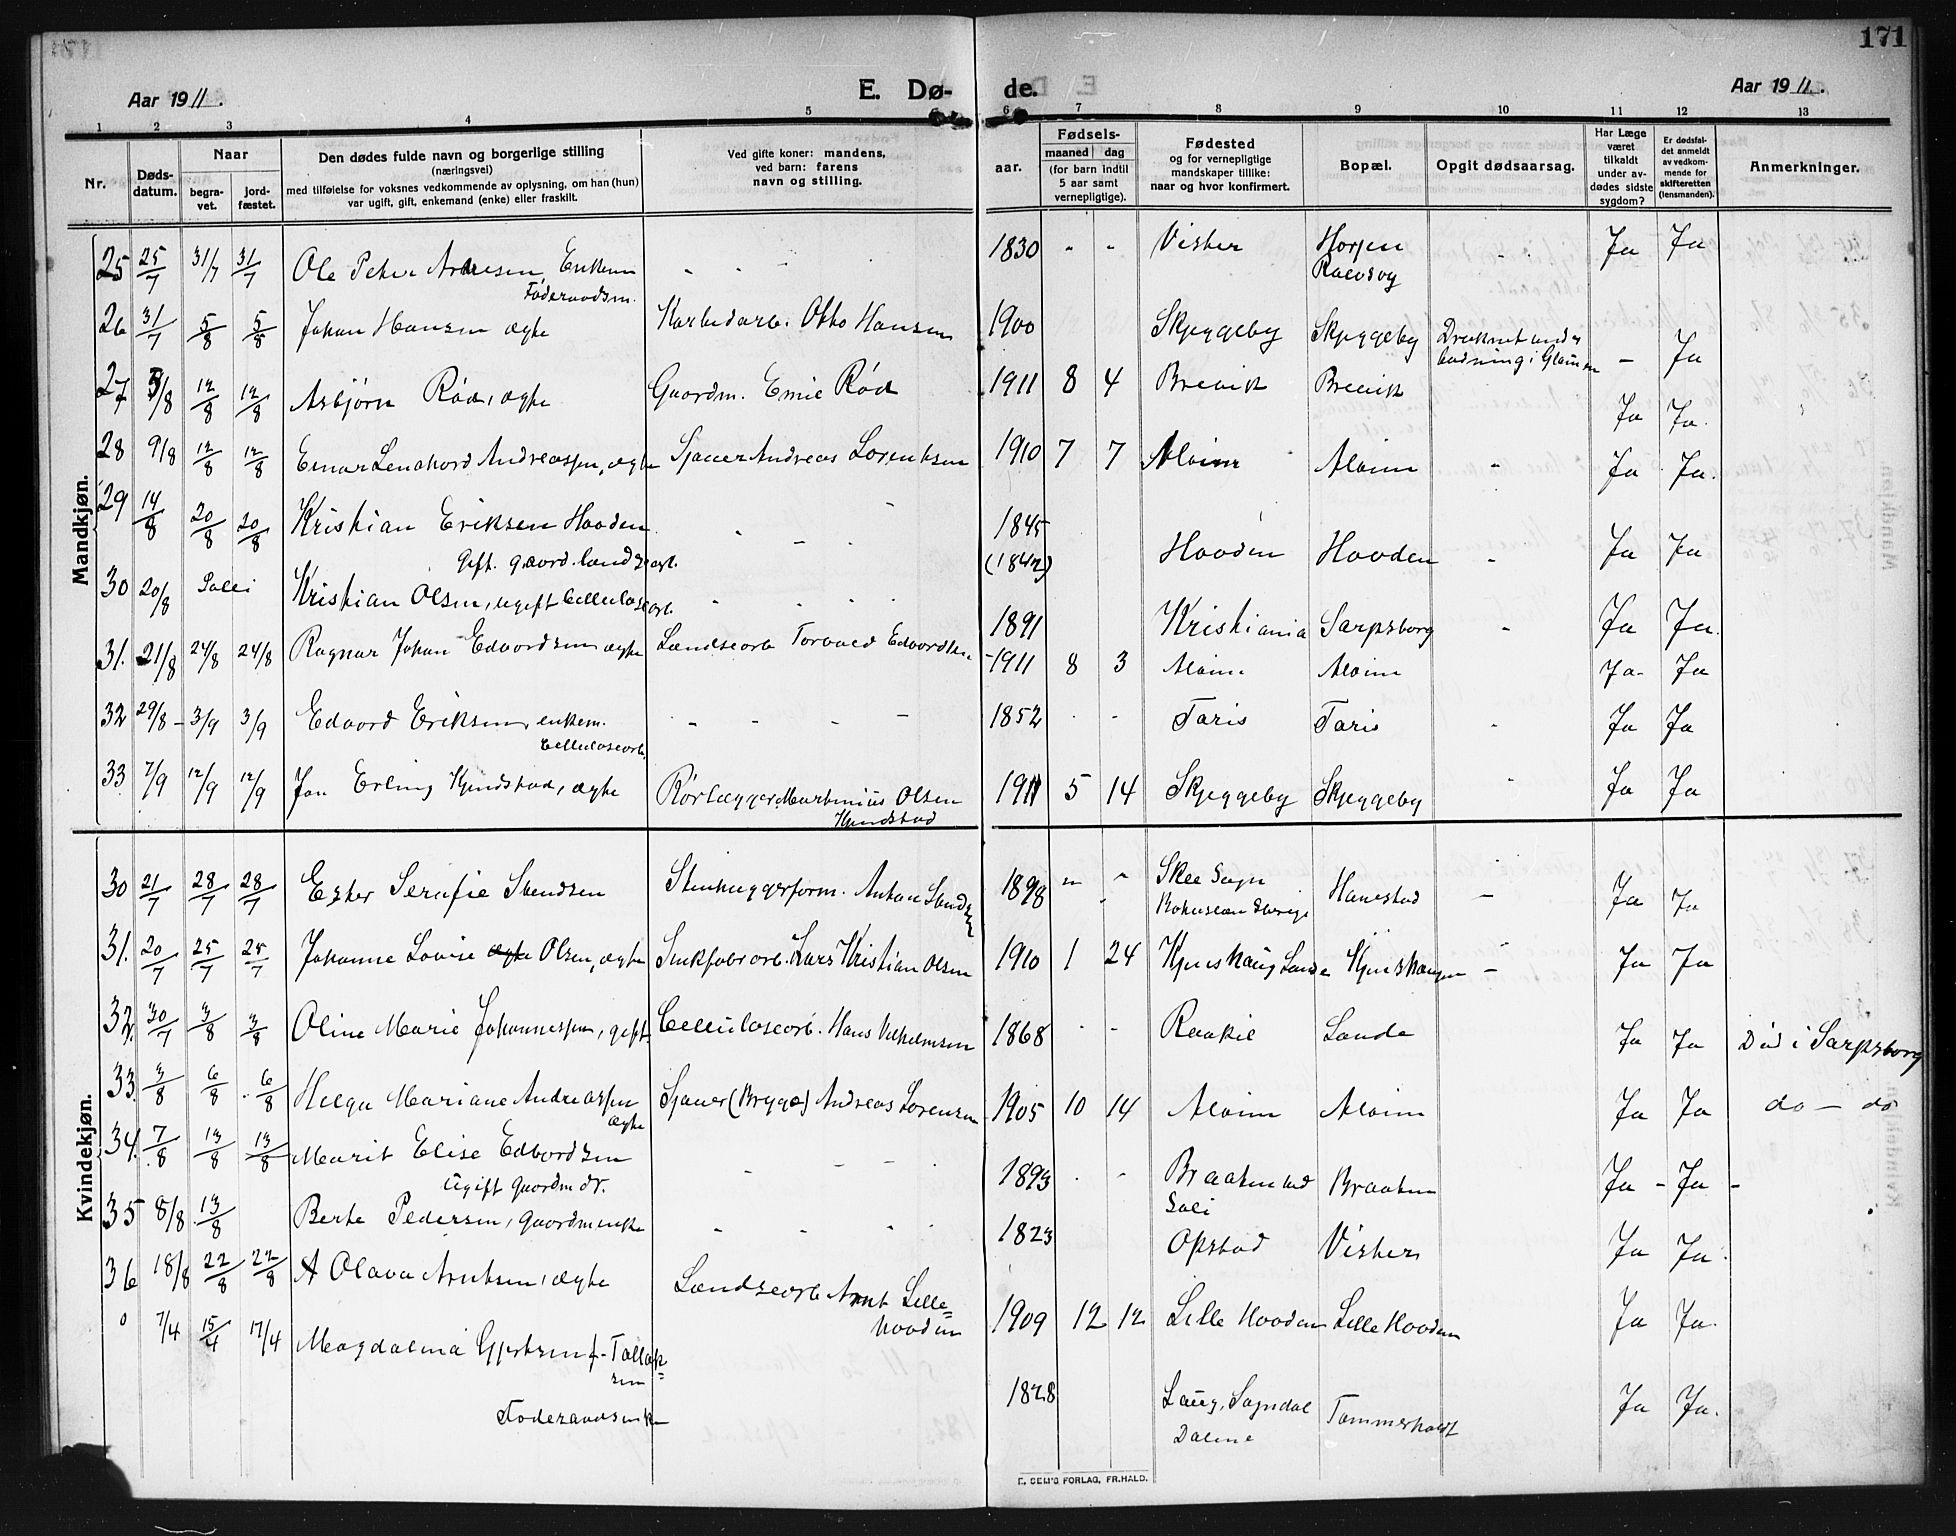 171
Aar 1911.
E. Dø- de.
Aar 1911.
1 2 3 4 5 6 7 8 9 10 11 12 13
Nr.
Døds-
datum.
Naar
begra-
vet.
jord-
fæstet.
Den dødes fulde navn og borgerlige stilling
(næringsvei)
med tilføielse for voksnes vedkommende av oplysning, om han (hun)
var ugift, gift, enkemand (enke) eller fraskilt.
Ved gifte koner: mandens,
ved barn: farens
navn og stilling.
aar.
Fødsels-
maaned dag
(for barn indtil
5 aar samt
vernepligtige).
Fødested
og for vernepligtige
mandskaper tillike:
naar og hvor konfirmert.
Bopæl.
Opgit dødsaarsag.
Har Læge
været
tilkaldt
under av-
dødes sidste
sygdom?
Er dødsfal-
det anmeldt
av vedkom-
mende for
skifteretten
(lensmanden).
Anmerkninger.
Mandkjøn.
25 25/7 31/7 31/7 Ole Peter Andresen, Enkem - - - 1830 - - Visther Ja Ja
Føderaadsm.
26 31/7 5/8 5/8 Johan Hansen ægte Karbidarb. Otto Hansen 1900 Skjeggeby Skjeggeby Druknet under
badning i Glommen - Ja
27 5/8 12/8 12/8 Asbjørn Rød, ægte Gaardm. Emil Rød 1911 8 4 Brevik Brevik Ja Ja.
28 9/8 12/8 12/8 Einar Lenahard Andreassen, ægte Sjauer Andreas Lorentsen 1910 7 7 Alvim Alvim - Ja Ja.
29 14/8 20/8 20/8 Kristian Eriksen Haaden - - - 1845
gift. gaard. landsarb. (1842) Haaden Haaden - Ja Ja
30 20/8 Kristian Olsen, ugift Cellulosearb. 1891 Kristiania Sarpsborg - Ja Ja.
31. 21/8 24/8 24/8 Ragnar Johan Edvardsen ægte Landsearb Torvald Edvardsen 1911 8 3 Alvim Alvim Ja- Ja
32 29/8 - 3/9 3/9 Edvard Eriksen, enkem. - - - - 1852 - - Taris Taris - Ja Ja
Cellulosearb.
33 7/9 12/9 12/9 Jon Erling Kjindstad, ægte Rørlægger Martinius Olsen 1911 5 14 Skjeggeby Skjeggeby Ja Ja
Kjindstad
Kvindekjøn.
30 21/7 28/7 28/7 Ester Serafie Svendsen Stenhuggerform. Anton 1898 Skee Sogn Hanestad - Ja Ja
31. 20/7 25/7 25/7 Johanne Lovise ægte Olsen, ægte Lars Kristian Olsen 1910 1 24 - Ja Ja
32. 30/7 3/8 3/8 Oline Marie Johannessen, gift. Cellulosearb. Hans Vilhelmsen 1868 - - Raakil Sande Ja Ja Død i Sarpsborg
33. 3/8 6/8 6/8 Helga Mariane Andreassen Sjauer (Brygge) Andreas Lorensen 1905 10 14 Alvim Alvim Ja Ja do - do
ægte
34. 7/8 13/8 13/8 Marit Elise Edvardsen - - - 1893 - - Braaten ved Braaten Ja - Ja -
Ugift Gaardm dr. Soli
35 8/8 13/8 Berte Pedersen, Gaardmenke - - - 1823 Opstad Visther Ja Ja.
36 18/8 22/8 22/8 A Olava Arntsen, ægte Landsearb Arnt Lille= 1909 12 12 Lille Haaden Lille Haaden Ja Ja.
haaden
0 7/4 15/4 17/4 Magdalena Gjertsen f. Tallak=
sen
Føderaadsenke 1828 Laug, Sogndal Tommerholt Ja Ja.
Dalene
E. SEM'S FORLAG, FR.HALD.